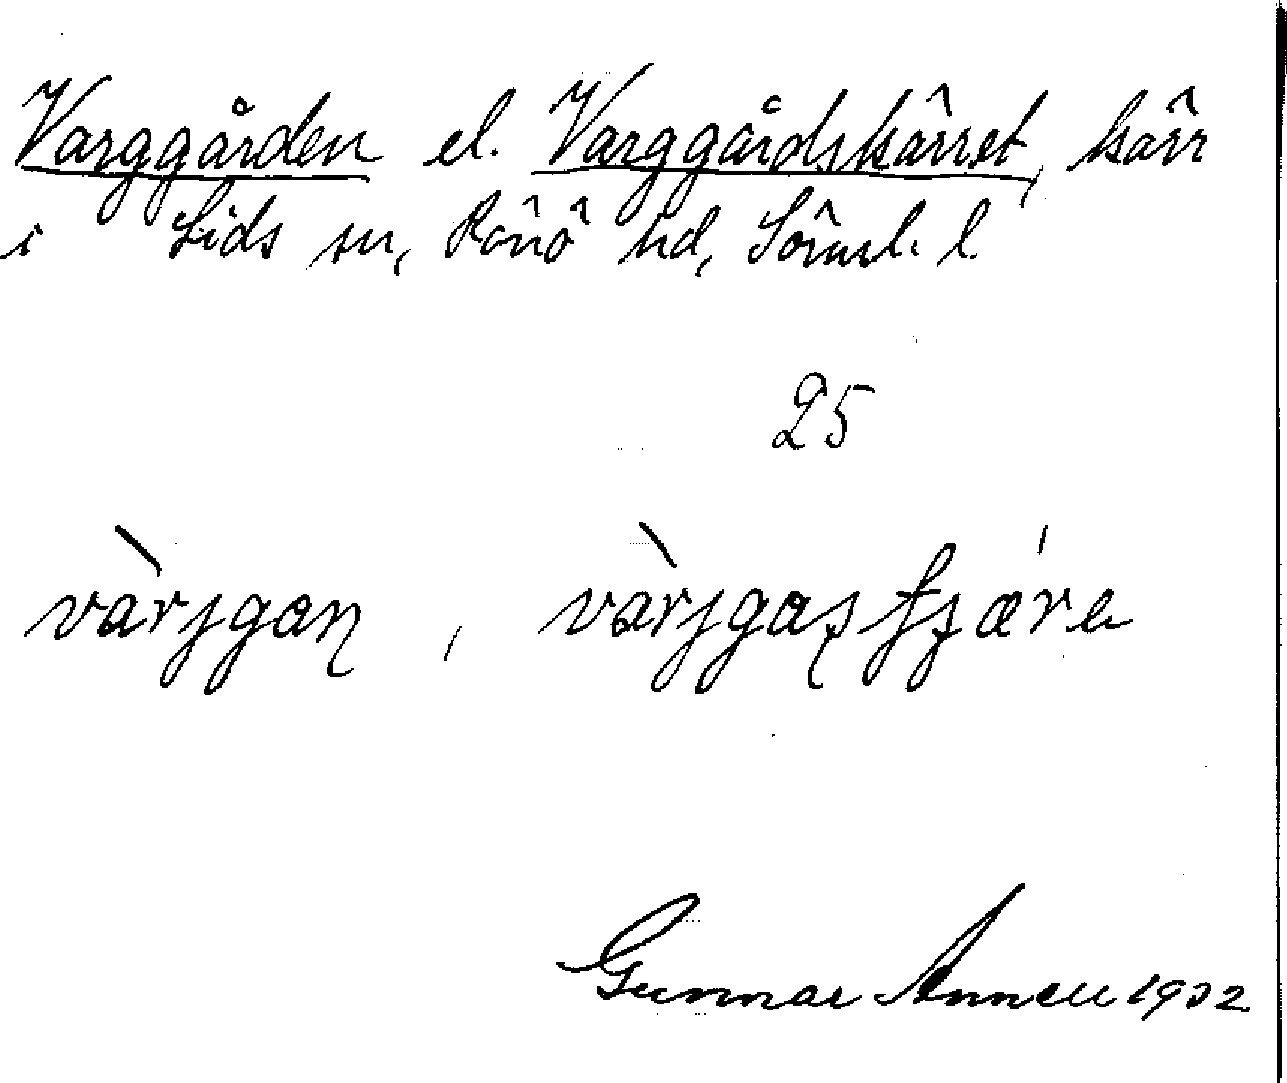 Varggården el. Varggårdskärret, kärr
i Lids sn, Rönö hd, Sörml. l.
25
vàrjgaṇ, vàrjgaʂfjǽra
Gunnar Annell 1932